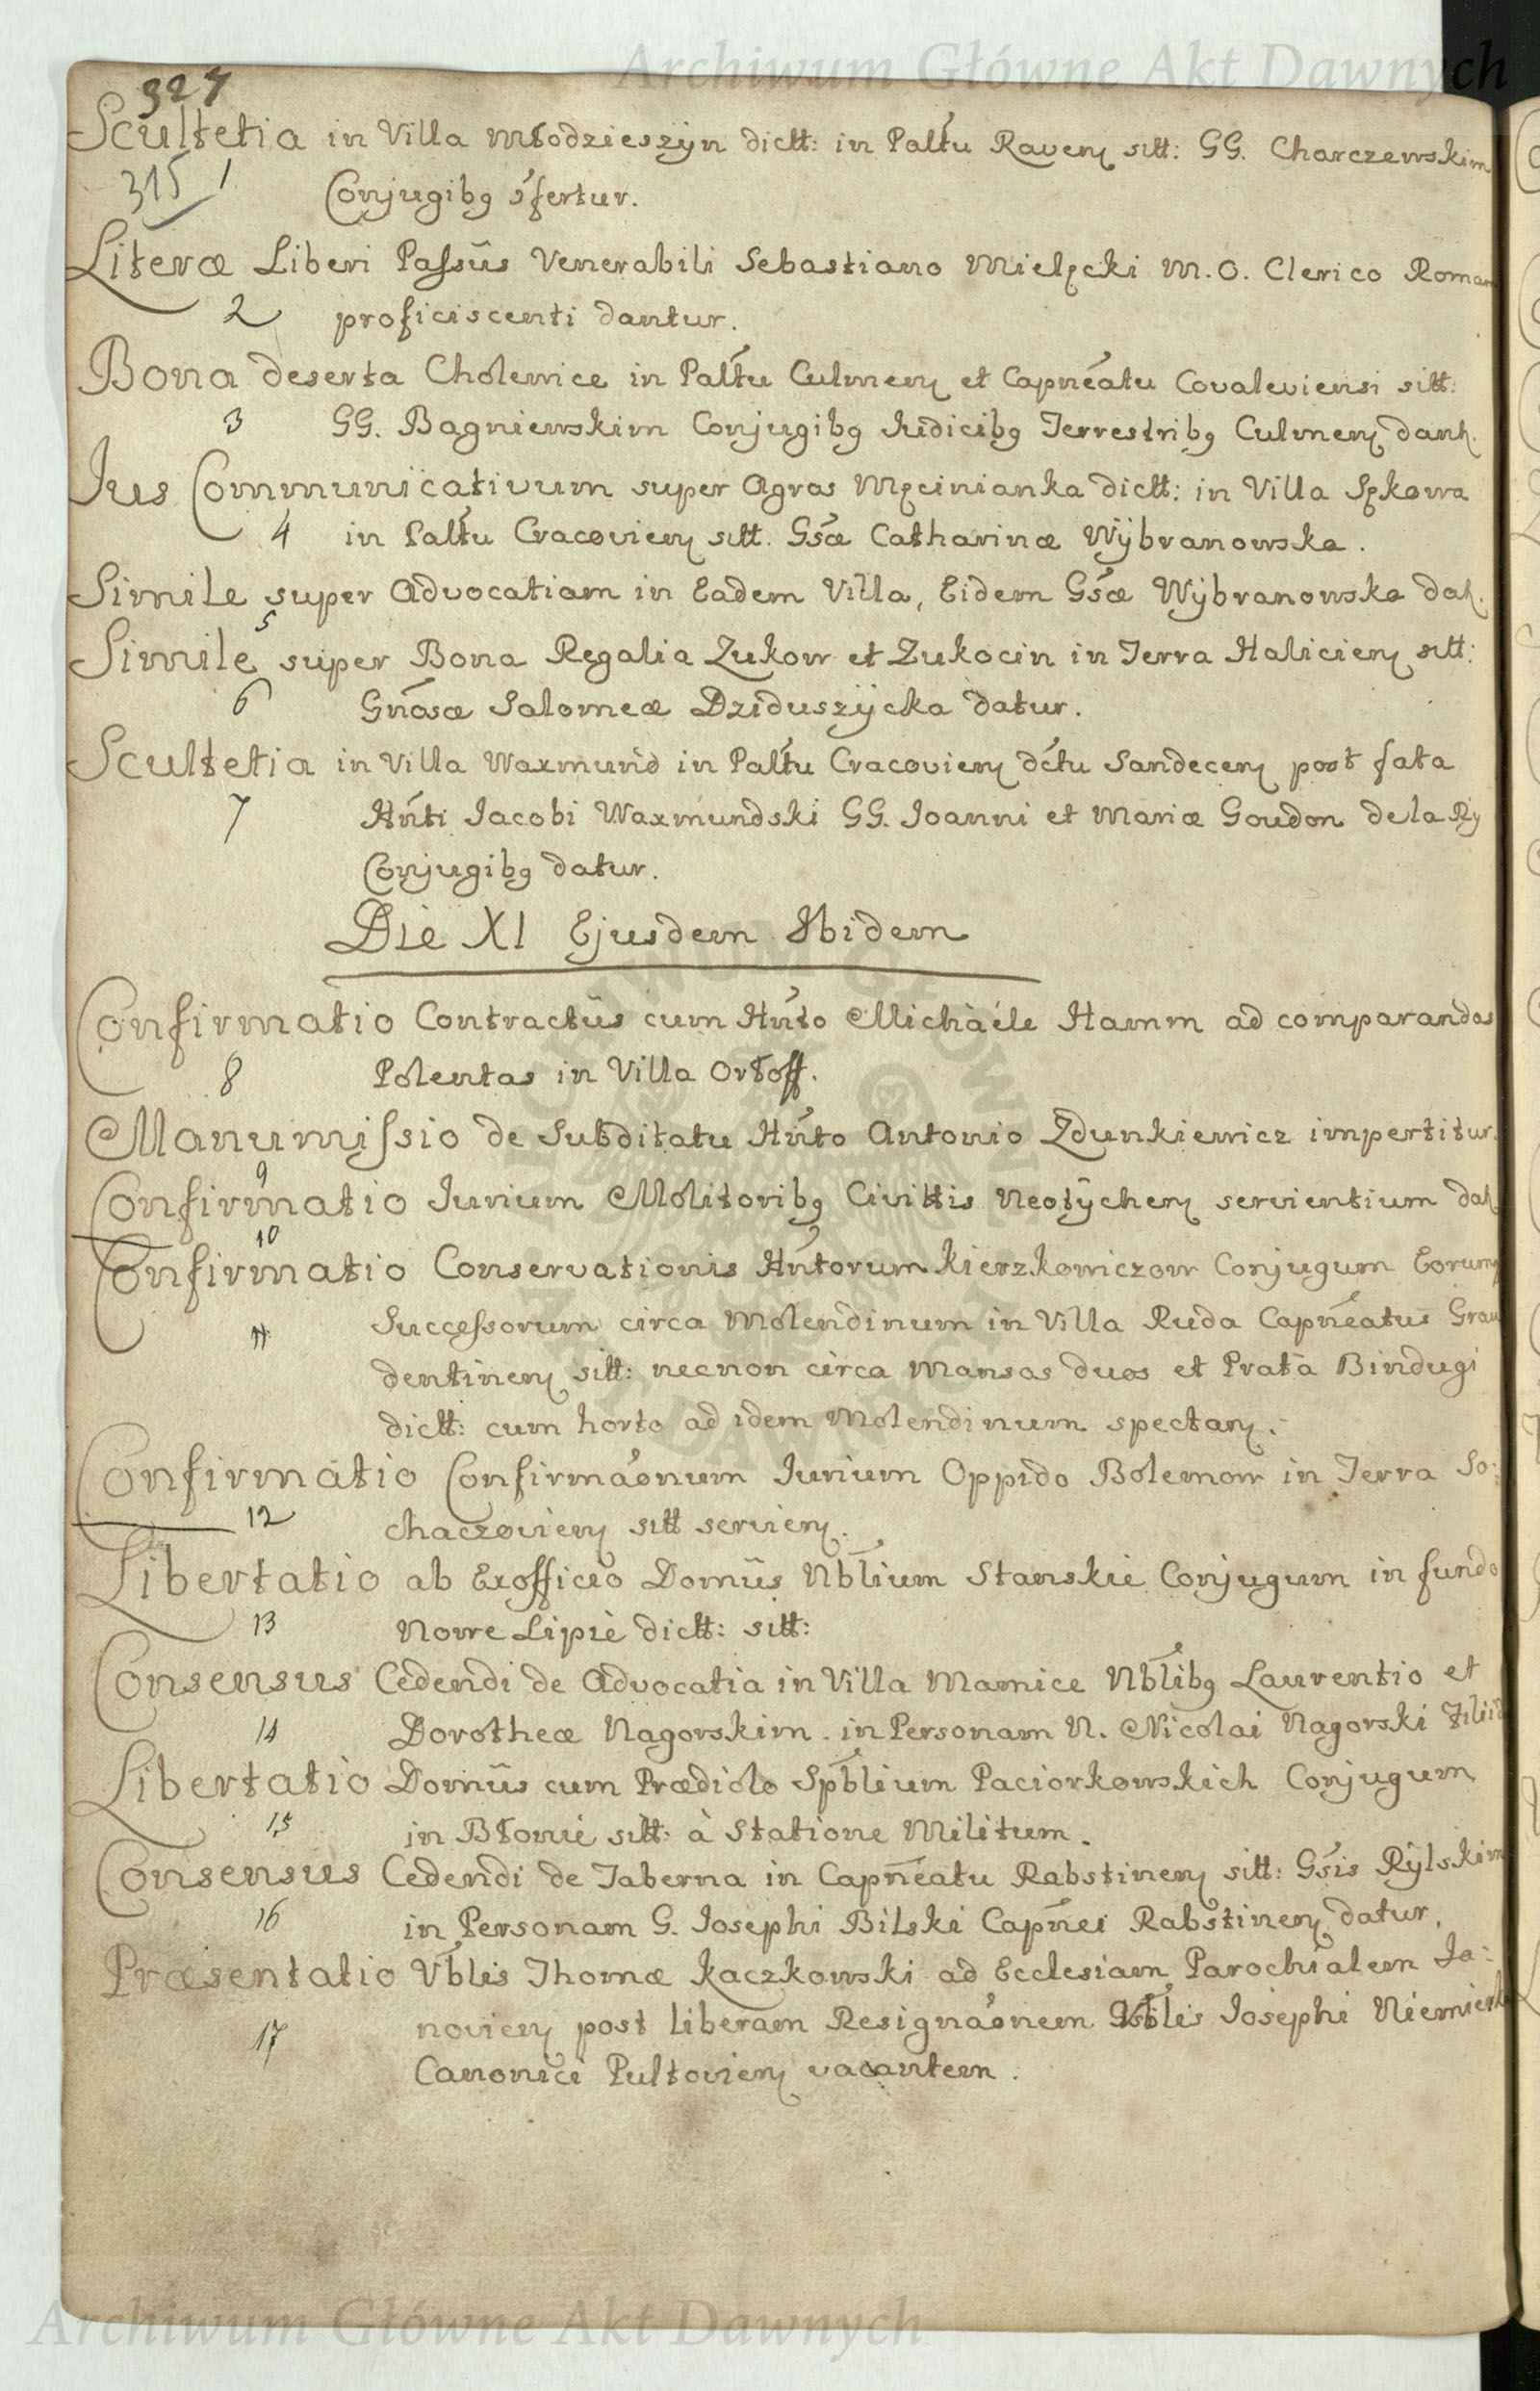 Archiwum Główne Akt Dawnych
327
Scultetia in Villa Młodzieszÿn dictt: in Palttu Raven sitt: GG. Charczewskim
315 1
Conjugibq 9fertur.
Literæ Liberi Passûs Venerabili Sebastiano Mielęcki M.O. Clerico Roman
2 proficiscenti dantur.
Bona deserta Cholewice in Palttu Culmen et Capnéatu Covaleviensi sitt:
3 GG. Bagniewskim Conjugibq Iudicibq Terrestribq Culmen dant.
Jus Communicativum super Agros Męcinianka dictt: in Villa Sękowa
4 in Palttu Cracovien sitt. Gsæ Catharinæ Wÿbranowska.
Simile super Advocatiam in Eadem Villa, Eidem Gsæ Wÿbranowska dat.
5
Simile super Bona Regalia Zukow et Zukocin in Terra Halicien sitt:
6 Gnosæ Salomeæ Dziduszÿcka datur.
Scultetia in Villa Waxmund in Palttu Cracovien dctu Sandecen post fata
7 Hnti Jacobi Waxmundski GG. Joanni et Mariæ Goudon dela
Conjugibq datur.
Die XI Ejusdem Ibidem
Confirmatio Contractûs cum Hnto Michaéle Hamm ad comparandas
8 Polentas in Villa Ortoff.
Manumissio de Subditatu Hnto Antonio Zdunkiewicz impertitur.
9
Confirmatio Jurium Molitoribq Civittis Neotÿchen servientium dat
10
Confirmatio Conservationis Hntorum Kierzkowiczow Conjugum Eorumq
11 Successorum circa Molendinum in Villa Ruda Capnéatus Grau
dentinen sitt: necnon circa Mansos duos et Prata Bindugi
dictt: cum horto ad idem Molendinum spectan.
Confirmatio Confirmaónum Jurium Oppido Bolemow in Terra So:
12 chaczovien sitt servien.
Libertatio ab Exofficio Domûs Nblium Stanskie Conjugum in fundo
13 Nowe Lipie dictt: sitt:
Consensus Cedendi de Advocatia in Villa Mamice Nblibq Laurentio et
14 Dorotheæ Nagorskim. in Personam N. Nicolai Nagorski
Libertatio Domûs cum Prædiolo Spblium Paciorkowskich Conjugum
15 in Błonie sitt: à Statione Militum.
Consensus Cedendi de Taberna in Capnéatu Rabstinen sitt: Gsis Rÿlskim
16 in Personam G. Josephi Bilski Capnei Rabstinen datur.
Præsentatio Vblis Thomæ Kaczkowski ad Ecclesiam Parochialem Ja:
17 novien post liberam Resignaónem Vblis Josephi
Canonici Pultovien vacantem.
Archiwum Główne Akt Dawnych